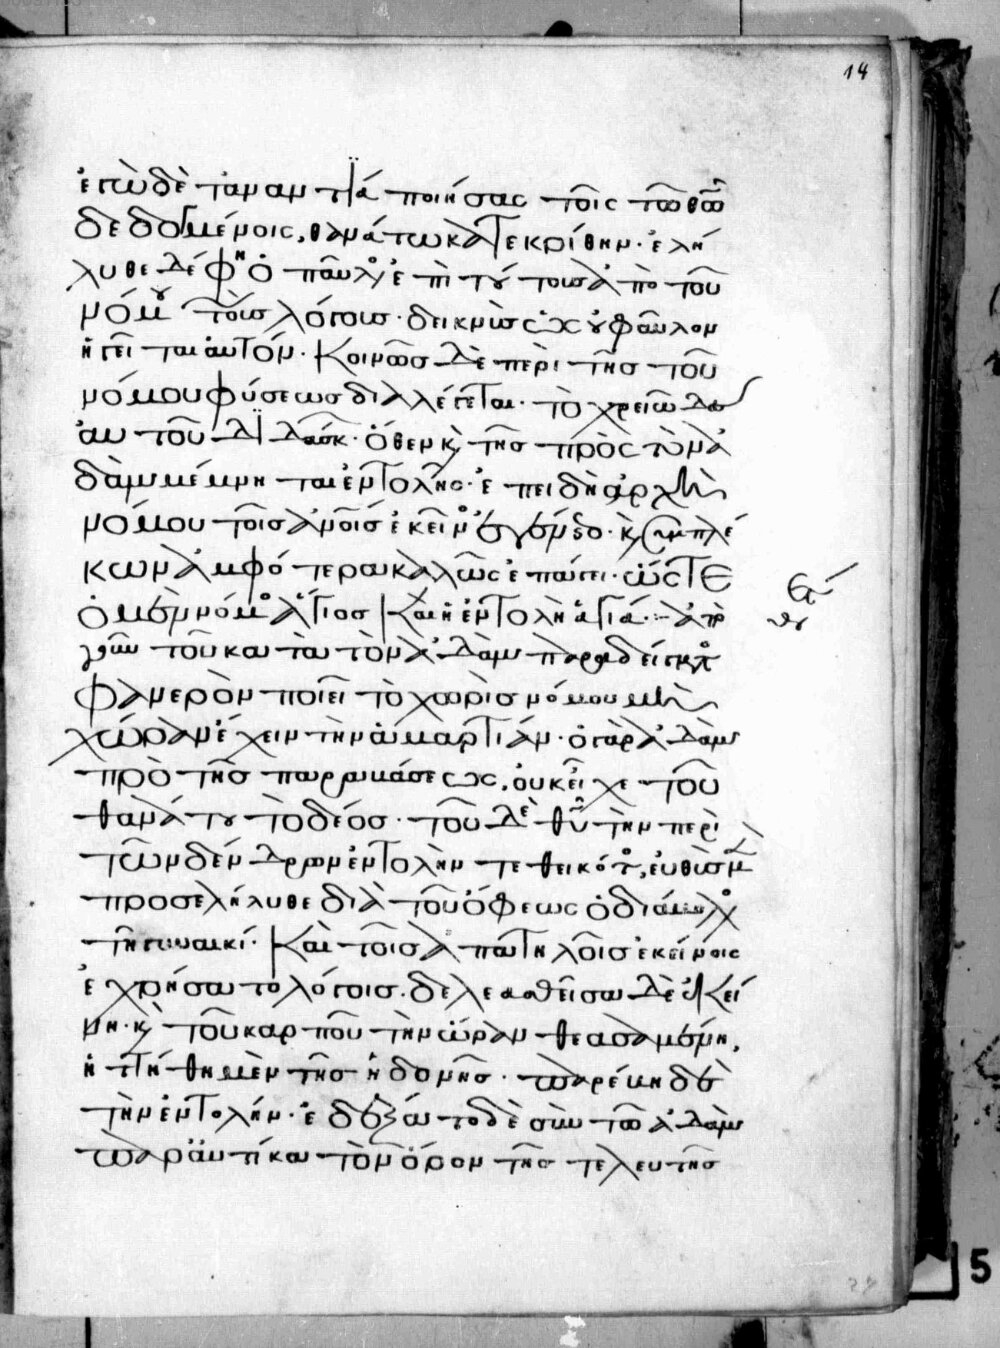 14
ἐγὼ δὲ τἀναντία ποιήσας τοῖς τῶ θῶ
δεδογμένοις, θανάτω κατεκρίθην· ἐλή
λυθε δέ φη ὁ παῦλος ἐπὶ τούτοις ἀπὸ τοῦ
νόμου τοῖς λόγοις· δεικνὺς ὡς οὐ φαῦλον
ἡγεῖται αὐτόν· Κοινῶς δὲ περὶ τῆς τοῦ
νόμου φύσεως διαλέγεται· τὸ χρειῶδες
αὐτοῦ διδάσκ· ὅθεν κ τῆς πρὸς τὸν ἀ
δὰμ μέμνηται ἐντολῆς· ἐπειδὴ ἀρχὴ
νόμου τοῖς ἀνοῖς ἐκεῖνο ἐγένετο· κ συμπλέ
κων ἀμφότερα καλῶς ἐπάγει· ὥστε
ὁ μὲν νόμος ἅγιος Καὶ ἡ ἐντολὴ ἁγία·
τοῦ κατὰ τὸν ἀδὰμ παραδείγματος
φανερὸν ποιεῖ τὸ χωρὶς νόμου μὴ
χώραν ἔχειν τὴν ἁμαρτίαν· ὁ γὰρ ἀδὰμ
πρὸ τῆς παραβάσεως, οὐκ εἶχε τοῦ
θανάτου τὸ δέος· τοῦ δὲ θῦ τὴν περὶ
τῶν δένδρων ἐντολὴν τεθεικότος, εὐθὺς μ
προσελήλυθε διὰ τοῦ ὄφεως ὁ διάβολος
τῆ γυναικί· Καὶ τοῖς ἀπατηλοῖς ἐκείνοις
ἐχρήσατο λόγοις· δελεασθεῖσα δὲ ἐκεί
νη· κ τοῦ καρποῦ τὴν ὥραν θεασαμένη,
ἡττήθη μὲν τῆς ἡδονῆς· παρέβη δὲ
τὴν ἐντολήν· ἐδέξατο δὲ σὺν τῶ ἀδὰμ
παραυτίκα τὸν ὅρον τῆς τελευτῆς
5